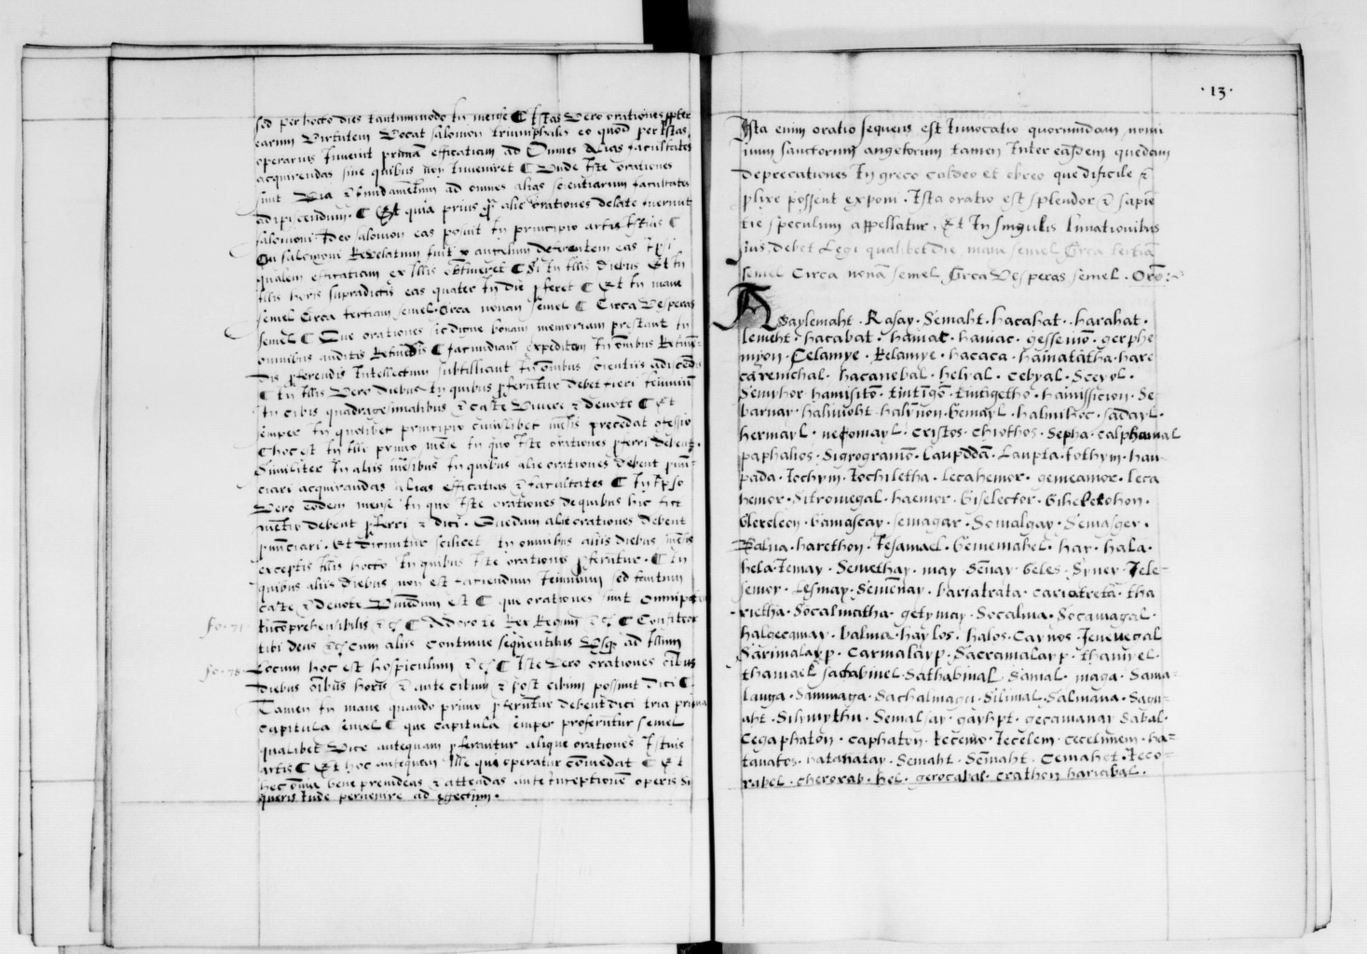 sed per hocto dies tantummodo in mense ¶ Istas vero orationes ppter
earum virtutem vocat salomon triumphales eo quod per istas
operarius invenit primā efficatiam ad omnes alias facultates
acquirendas sine quibus non inveniret ¶ Unde iste orationes
sunt via & fundamentum ad omnes alias scientiarum facultates
adipiscendum. ¶ Et quia prius q̄ alie orationes delate fuerunt
salomoni Ideo salomon eas posuit in principio artis istius ¶
Cui salomoni Revelatum fuit angelum deferentem eas
qualem efficatiam ex illis obtineret ¶ Si in illis diebus Et in
illis horis supradictis eas quater in die pferet ¶ Et in mane
semel Circa tertiam semel Circa nonam semel ¶ Circa vesperas
semel ¶ Que orationes sic digne bonam memoriam prestant in
omnibus auditis Retinendis ¶ facundiam expeditam in omībus
dis pferendis Intellectum subtilliant in omībus scientiis
¶ in illis vero diebus in quibus pferuntur debet fieri Ieiuniū
in cibis quadragesimalibus & caste vivere & devote ¶ Et
semper in quolibet principio cuiuslibet mēsis precedat
¶ hoc est in illo primo mēse in quo iste orationes pferri debent.
Similiter in aliis mēsibus in quibus alie orationes debent
ciari acquirandas alias efficatias & facultates ¶ In ipso
vero eodem mense in quo iste orationes de quibus hic fit
debent pferri & dici. Quedam alie orationes debent
pnunciari. Et dicuntur scilicet in omnibus aliis diebus mēsis
exceptis illis hocto in quibus iste orationes pferuntur. ¶ In
quibus aliis diebus non est faciendum Ieiunium sed tantum
caste & devote vivendum est ¶ que orationes sunt omnipotens
fo. 71 incōprehensibilis &c ¶ Adoro te Rex Regum &c ¶ Confiteor
tibi deus &c Cum aliis continue sequentibus usq ad illum
fo. 78 Locum hoc est hospiculum &c ¶ Iste vero orationes oībus
diebus oībus horis & ante cibum & post cibum possunt dici ¶
Tamen in mane quando primo pferuntur debent dici tria prima
capitula semel ¶ que capitula semper proferuntur semel
qualibet vice antequam pferuntur alique orationes istius
artis ¶ Et hoc antequam ille qui operatur comedat ¶ Et
hec omia bene provideas & attendas ante inceptionē operis si
queris inde pervenire ad effectum.
.13.
Ista enim oratio sequens est Invocatio quorundam nomi
num sanctorum angelorum tamen Inter easdem quedam
deprecationes In greco caldeo et ebreo que dificile &
plixe possent exponi. Ista oratio est splendor & sapiē
tie speculum appellatur. Et In singulis lunationibus
suis debet Legi qualibet die mane semel Circa tertiā
semel Circa nonā semel Circa Vesperas semel. Orō:
Assaylemaht. Rasay. Semaht. hacahat. harahat.
lemeht. hacabat. hamat. hamac. gessemō. gerphe
myon. Celamye. Relamye. hacaca. hamatātha. hare
caremichal. hacanebal. helyal. cebyal. Sceyol.
Semyhor. hamisitō. tintīgō. tintigethō. hamissicion. Se-
barnay. halmoht. halymon. Gemayl. halmihoc. Sadayl.
hermayl. nefomayl. Cristos. chiothos. Sepha. calphamal
paphalios. Sigrogramō. Laupddā. Laupta. Iothym. hau
pada. Iochym. Iochiletha. Lecahemor. gemeamor. Leca
hemor. Sitromegal. haemor. Giselector. Gihelerohon.
Glereleon. Gamascay. Semagar. Semalgay. Semasger.
Balna. harethon. Iesamael. Gememahel. har. hala.
hela. Iemay. Semethay. may. Sēnay. Geles. Syney. Iele-
semor. Lesmay. Semēnay. Bariatrata. cariatretā. tha
rietha. Socalmatha. getymay. Socalma. Socamagal.
halgecgmay. balma. hay los. halos. Caynos. Ienevegal
Sarimalayp. Carmalayp. Sacramalayp. thamyel.
thamael. sagabinel. Sathabmal. Samal. maga. Sama-
langa. Sammaga. Sachalmagu. Silimal. Salmana. Sagn-
aht. Silymythu. Semalsay. gayhpt. gecamanay. Sabal.
Cegaphaton. caphaton. Iecremō. Iecrelem. cecelmem. ha-
tanatos. hatanatay. Semaht. Semaht. Cemahet. Iezo-
rahel. cherorab. hel. gerocabal. crathon. haricabal.